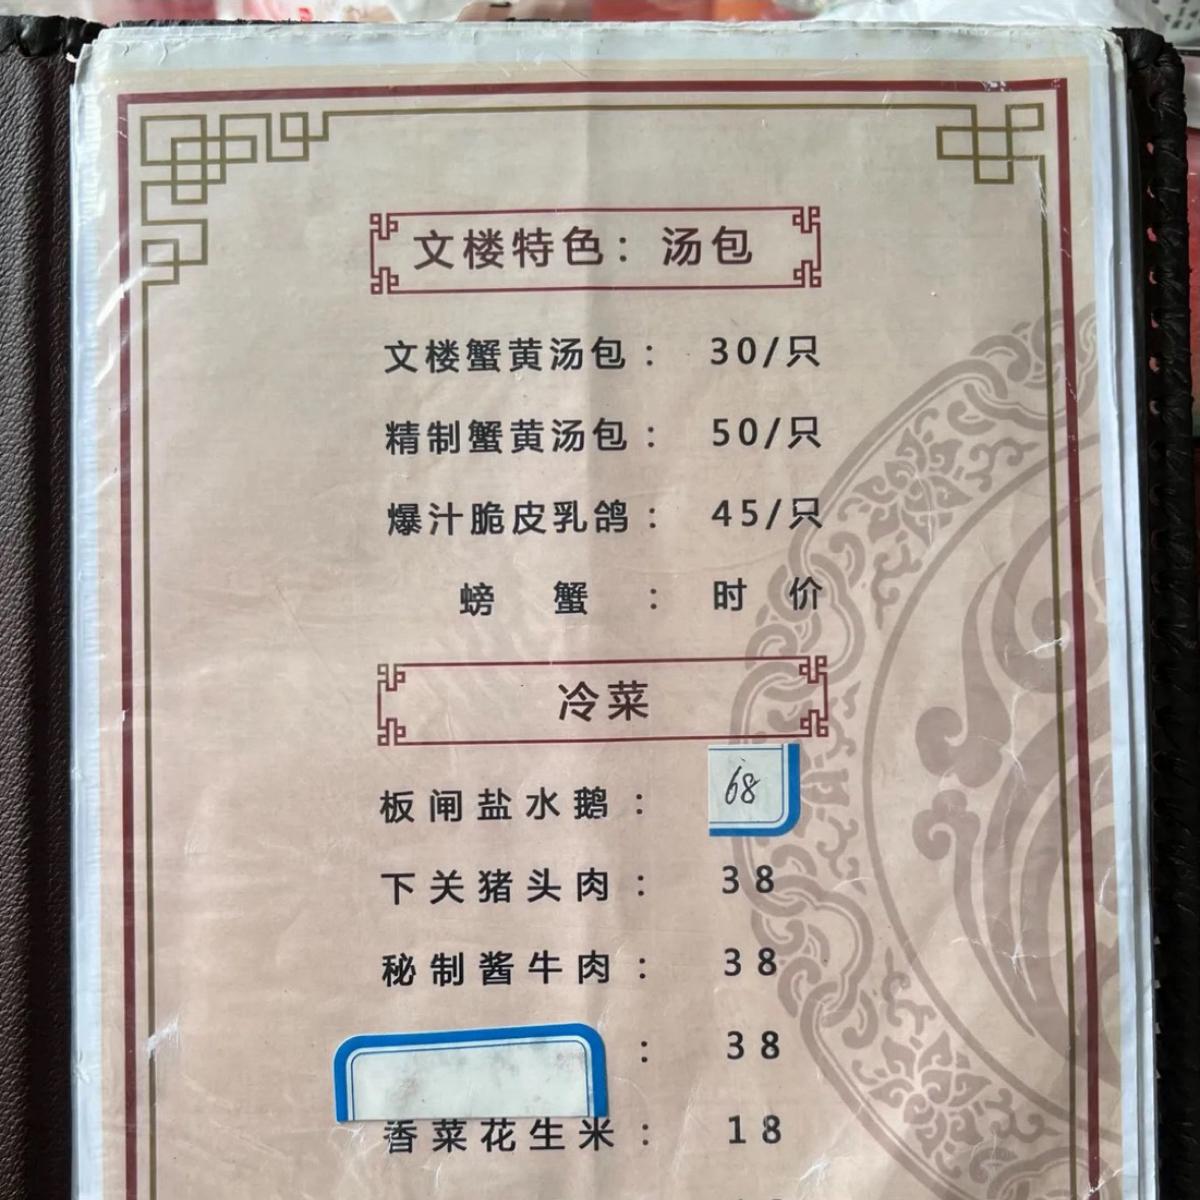 文楼特色：汤包
文楼蟹黄汤包： 30/只
精制蟹黄汤包： 50/只
爆汁脆皮乳鸽： 45/只
螃蟹： 时价
冷菜
板闸盐水鹅： 68
下关猪头肉： 38
秘制酱牛肉： 38
： 38
香菜花生米： 18